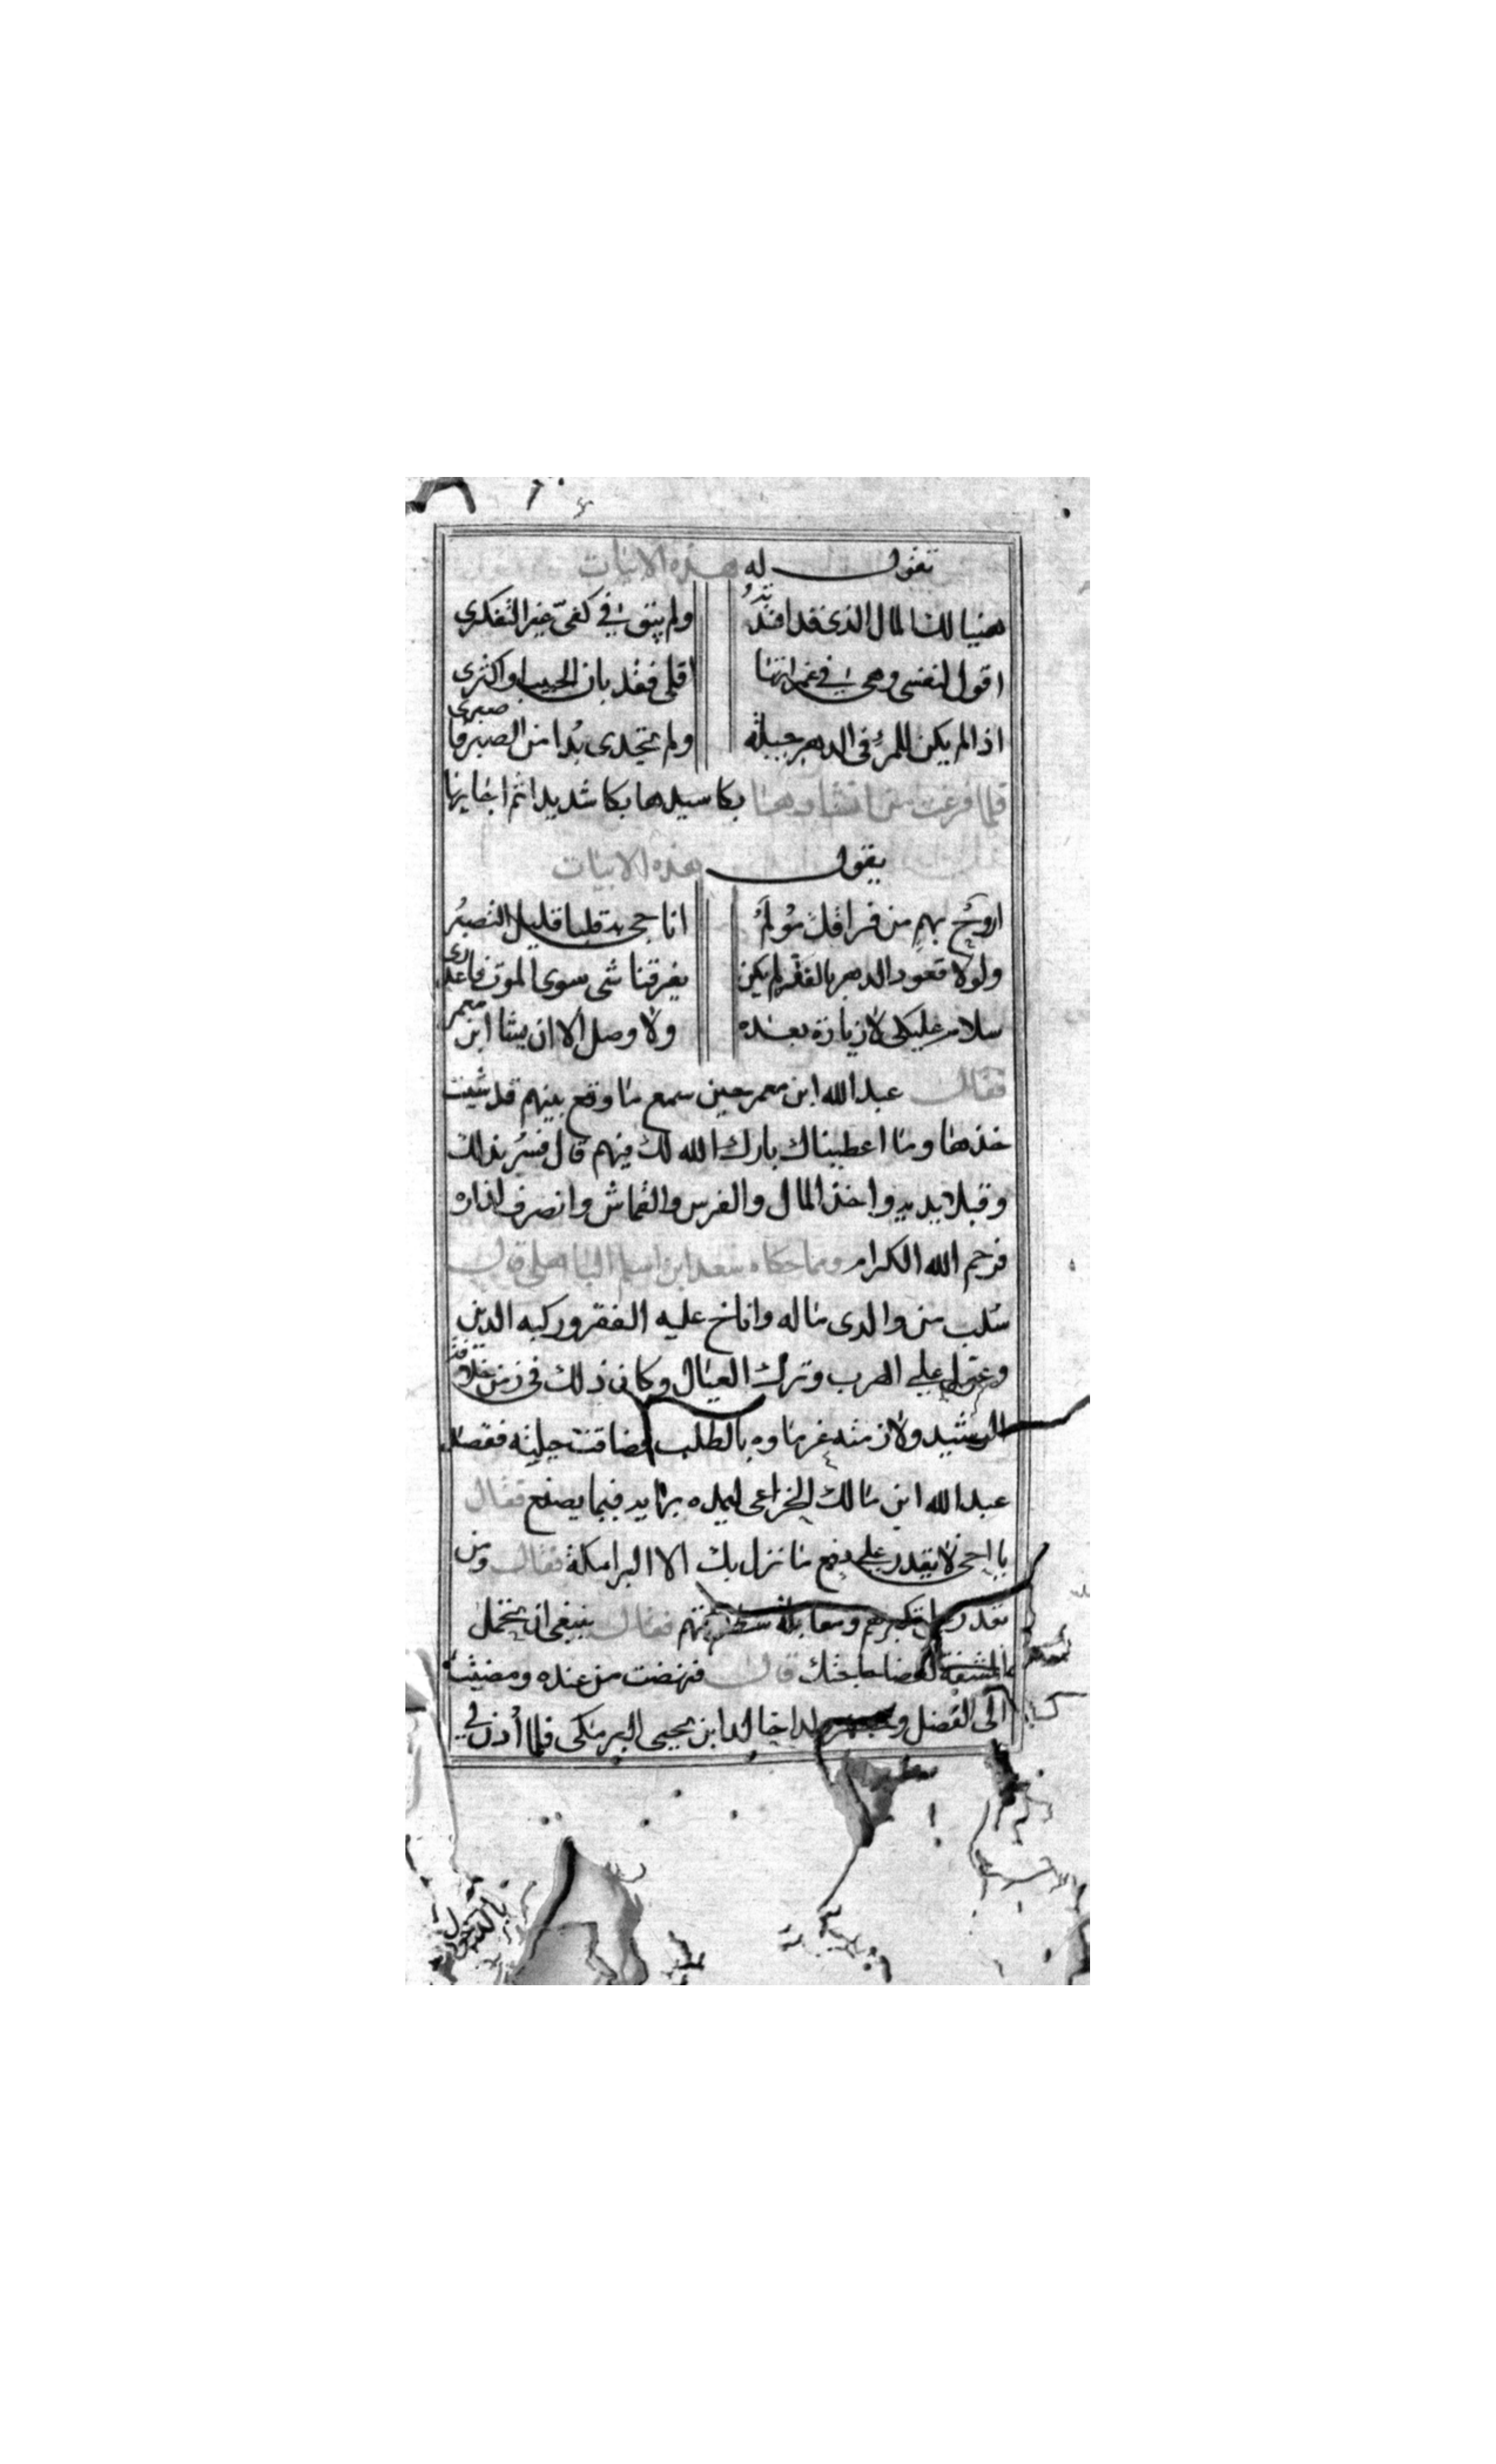 تقول له هذه الابيات
هنيا لك المال الذى قد افدته ولم يبق في كفى غير التفكرى
اقول لنفسى وهى في غمراتها اقلى فقد بان الحبيب او اكثرى
اذا لم يكن للمرء فى الدهر حيلة ولم تجدى بدا من الصبر فاصبرى
فلما فرغت من انشادها بكا سيدها بكا شديدا ثم اجابها
يقول هذه الابيات
اروح بهم من فراقك مولم اناجى به قلبا قليل التصبر
ولولا قعود الدهر بالفقر لم يكن يفرقنا شى سوى الموت فاعذرى
سلام عليكى لا زيارة بعده ولا وصل الا ان يشا ابن معمر
فقال عبد الله ابن معمر حين سمع ما وقع بينهم قد شيت
خذها وما اعطيناك بارك الله لك فيهم قال فسر بذلك
وقبلا يديه واخذ المال والفرس والقماش وانصرف لداره
فرحم الله الكرام ومما حكاه سعد ابن اسلم الباهلى قال
سلب من والدى ماله واناخ عليه الفقر وركبه الدين
وعول على الهرب وترك العيال وكان ذلك فى زمن خلافة
الرشيد ولازمته غرماوه بالطلب فضاقت حيلته فقصد
عبد الله ابن مالك الخزاعى ليمده برايه فيما يصنع فقال
يا اخى لا يقدر على دفع ما نزل بك الا البرامكة فقال ومن
يقدر على تكبرهم فقال ينبغى ان تتحمل
المشقة لقضا حاجتك قال فنهضت من عنده ومضيت
الى الفضل خالد ابن يحيى البرمكى فلما أذن لي
بالدخول